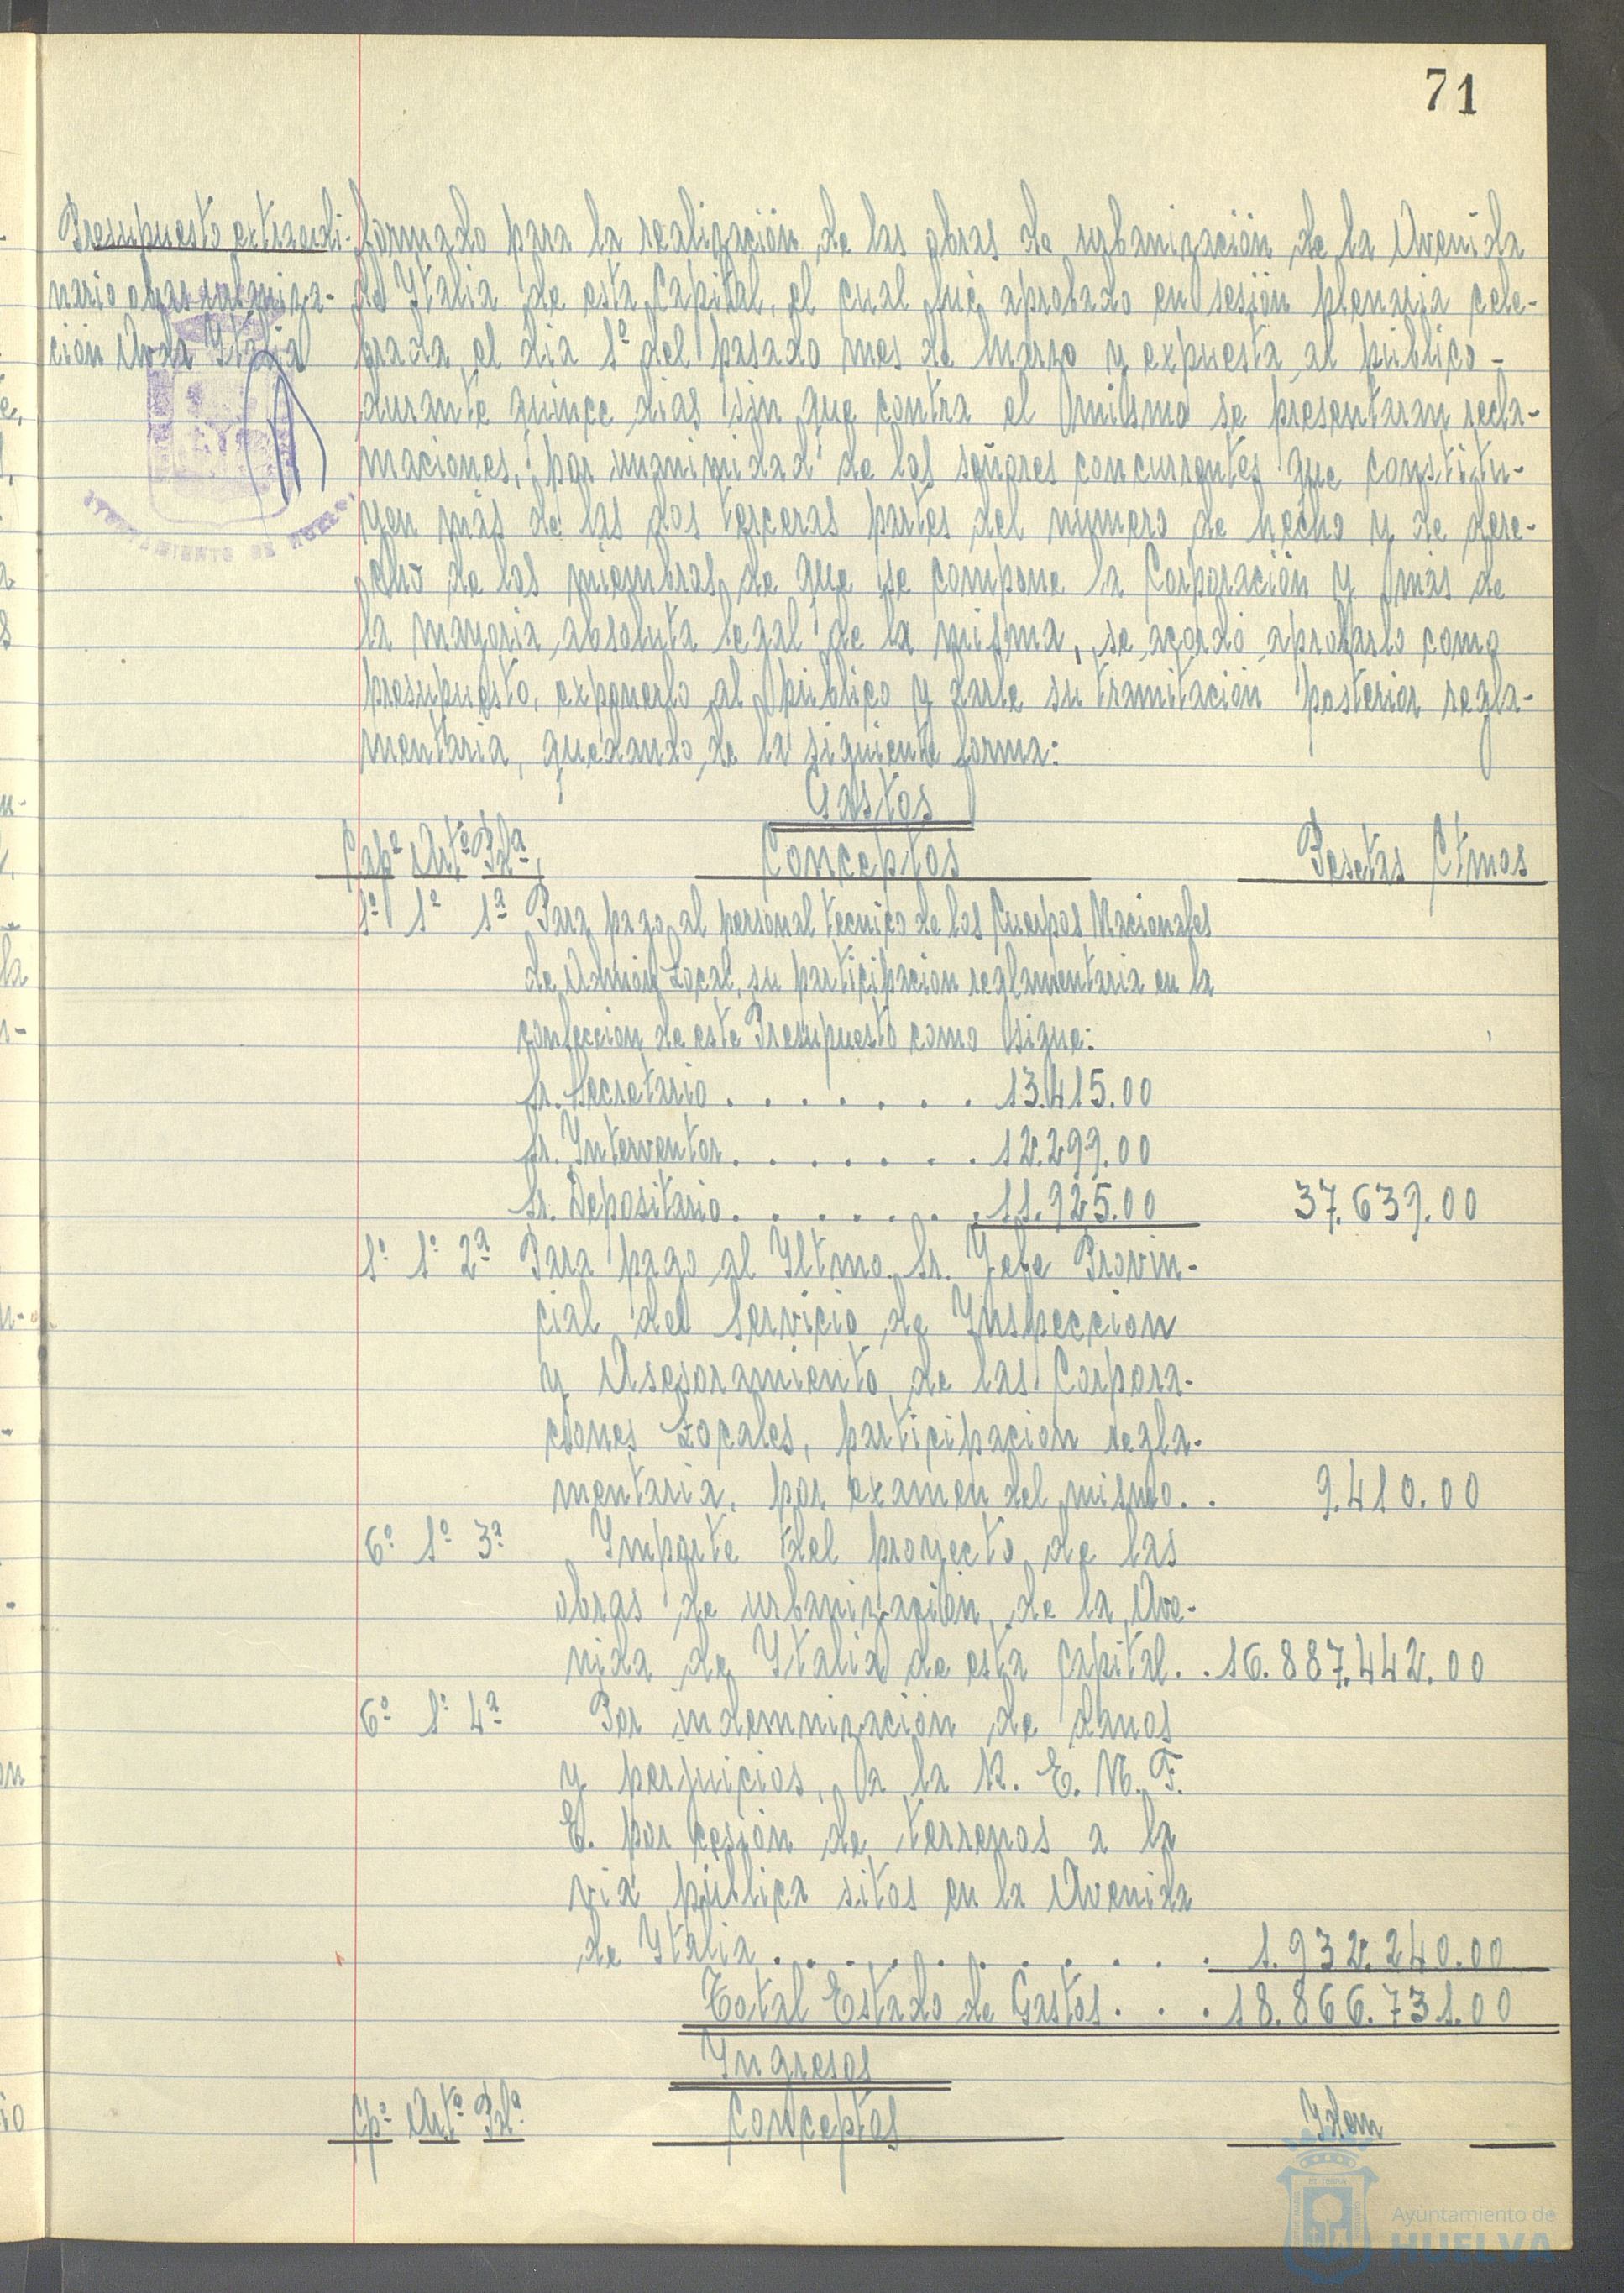 71
Presupuesto extraordi-
nario obras urbaniza-
ción Avda Italia
AYUNTAMIENTO DE HUELVA
formado para la realización de las obras de urbanización de la Avenida
de Italia de esta Capital, el cual fué aprobado en sesión plenaria cele-
brada el dia 1º del pasado mes de Marzo y expuesta al público -
durante quince dias sin que contra el mismo se presentaran recla-
maciones, por unanimidad de los señores concurrentes que constitu-
yen más de las dos terceras partes del numero de hecho y de dere-
cho de los miembros de que se compone la Corporación y más de
la mayoria absoluta legal de la misma, se acordó aprobarlo como
presupuesto, exponerlo al público y darle su tramitación posterior regla-
mentaria, quedando de la siguiente forma:
Gastos
Capº Artº Pdª Conceptos Pesetas Ctmos
1º 1º 1ª Para pago al personal tecnico de los Cuerpos Nacionales
de Admón Local, su participacion reglamentaria en la
confeccion de este Presupuesto como sigue:
Sr. Secretario . . . . . . . 13.415.00
Sr. Interventor . . . . . . . 12.299.00
Sr. Depositario . . . . . . . 11.925.00 37.639.00
1º 1º 2ª Para pago al Iltmo. Sr. Jefe Provin-
cial del Servicio de Inspeccion
y Asesoramiento de las Corpora-
ciones Locales, participacion regla-
mentaria, por examen del mismo. . 9.410.00
6º 1º 3ª Importe del proyecto de las
obras de urbanización de la Ave-
nida de Italia de esta capital. . 16.887.442.00
6º 1º 4ª Por indemnización de danos
y perjuicios, a la R. E. N. F.
E. por cesión de terrenos a la
via pública sitos en la Avenida
de Italia . . . . . . . . . . . 1.932.240.00
Total Estado de Gastos . . . 18.866.731.00
Ingresos
Cpº Artº Pdª Conceptos Idem
Ayuntamiento de
HUELVA